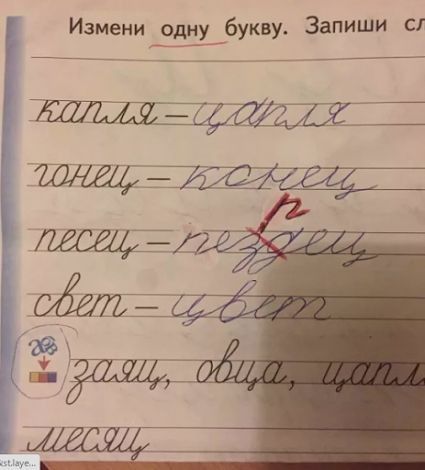 Измени одну букву. Запиши сл
капля – цапля
гонец – конец
р
песец – пездец
свет – цвет
заяц, овца, цапл
месяц
kst.laye...